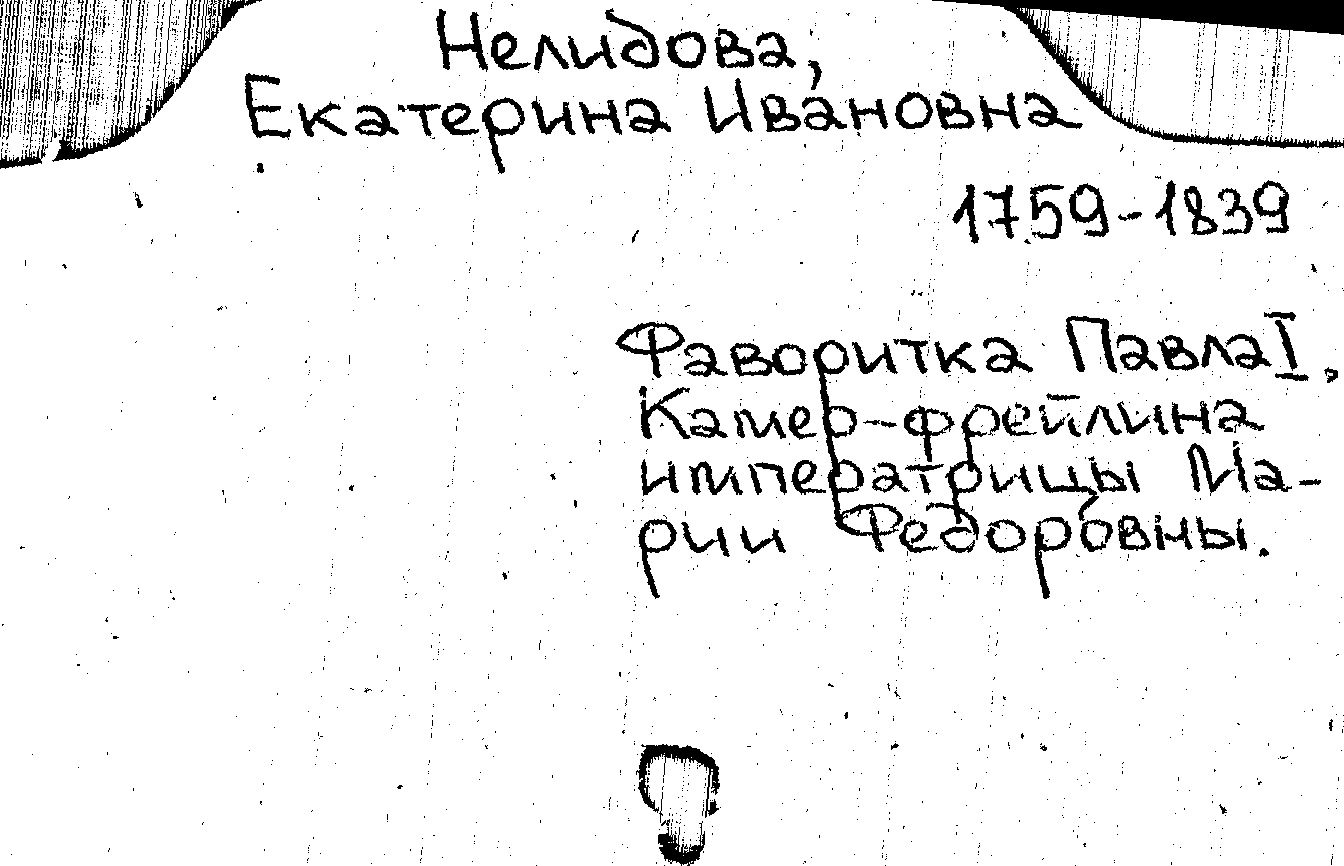 Нелидова,
Екатерина Ивановна
1759-1839
Фаворитка Павла I,
Камер-фрейлина
императрицы Ма-
рии Федоровны.